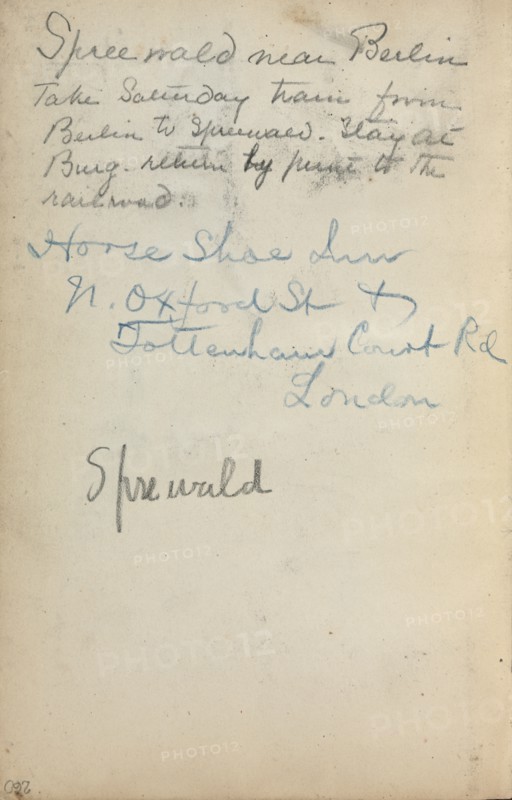 Spreewald near Berlin
Take Saturday train from
Berlin to Sprewald. Stay at
Burg. return by punt to the
railroad.
Horse Shoe Inn
N. Oxford St &
Tottenham Court Rd
London
Sprewald
260